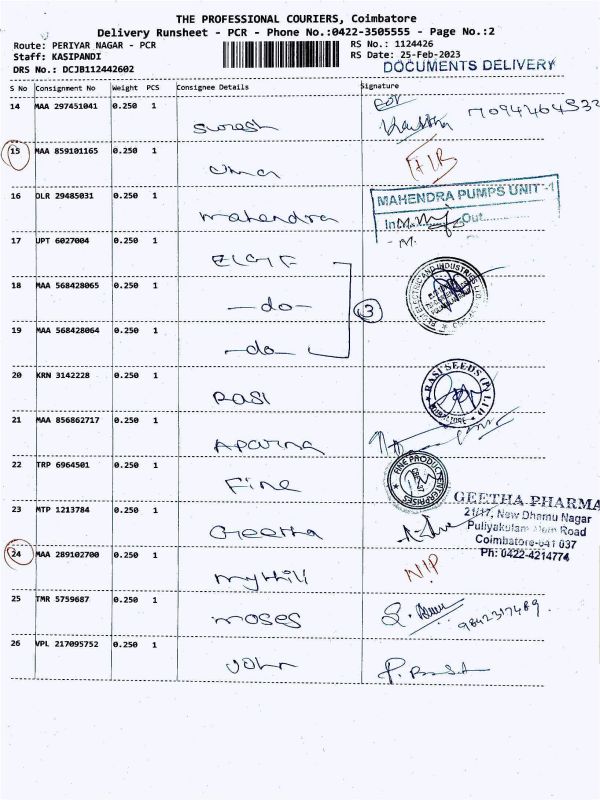 THE PROFESSIONAL COURIERS, Coimbatore
Delivery Runsheet - PCR - Phone No.:0422-3505555 - Page No.:2
Route: PERIYAR NAGAR - PCR
RS No.: 1124426
Staff: KASIPANDI
RS Date: 25-Feb-2023
DRS No.: DCJB112442602
DOCUMENTS DELIVERY
S No Consignment No Weight PCS Consignee Details Signature
14 MAA 297451041 0.250 1 Suresh
15 MAA 859101165 0.250 1 Uma
16 DLR 29485031 0.250 1 Mahendra
MAHENDRA PUMPS UNIT-1
In Out
17 UPT 6027004 0.250 1 ELGI F
18 MAA 568428065 0.250 1 -do-
3
19 MAA 568428064 0.250 1 -do-
20 KRN 3142228 0.250 1 RASI
RASI SEEDS (P) LTD
21 MAA 856862717 0.250 1 Aparna
22 TRP 6964501 0.250 1 Fine
FINE PRODUCT ENTERPRISES
23 MTP 1213784 0.250 1 Geetha
GEETHA PHARMA
21/17, New Dhamu Nagar
Puliyakulam Main Road
Coimbatore-641 037
Ph: 0422-4214774
24 MAA 289102700 0.250 1 Mythili
25 TMR 5759687 0.250 1 Moses
9842317489.
26 VPL 217095752 0.250 1 John